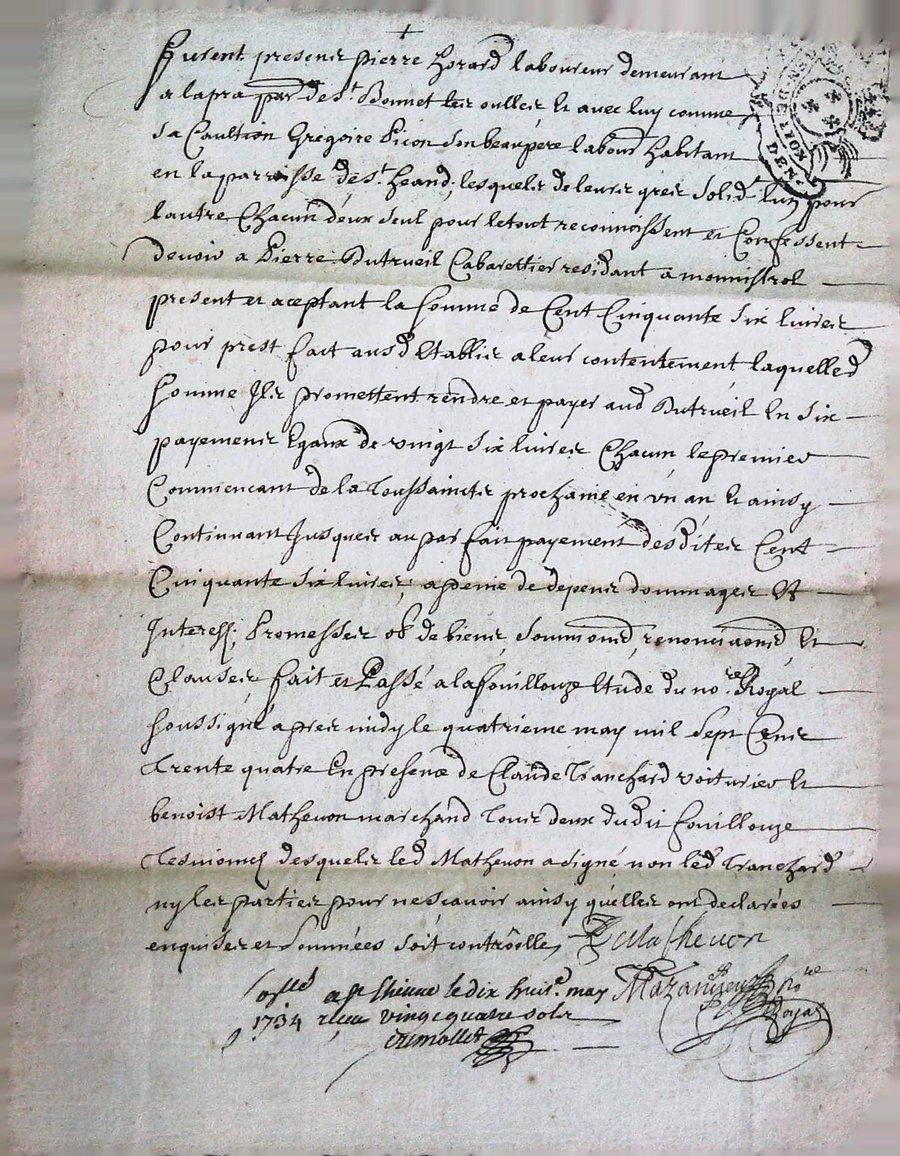 Furent presens pierre horard laboureur demeurant
a lapra par de St Bonnet les oulles et avec luy comme
sa Caultion Gregoire Picon son beaupere labour habitant
en la parroisse de St heand, lesquels de leurs gres solidt l'un pour
lautre Chacun deux seul pour le tout reconnoissent et Confessent
devoir a Pierre Dutrueil Cabarettier residant a monnistrol
present et aceptant la somme de Cent Cinquante six livres
pour prest fait ausd Etablis a leur contentement laquelled
somme Ils promettent rendre et payer aud Dutrueil En six
payemens Egaux de vingt six livres Chacun le premier
Commencant de la Toussaincts prochaine en un an et ainsy
Continuant Jusques au parfait payement desdites Cent
Cinquante six livres, a peine de depens dommages Et
Interess, Promesses ob de biens, soummond, renonciaond, Et
Clauses, fait et Passé a la fouillouze Etude du nore Royal
soussigné apres midy le quatrieme may mil sept Cens
Trente quatre En presence de Claude Tranchard voiturier Et
benoist Mathevon marchand Tous deux dudit fouillouze
Tesmoins desquels led Mathevon a signé non led Tranchard
ny les parties pour ne scavoir ainsy quelles ont declarées
enquises et sommées soit controolle,
Mathevon
ast Etienne le dix huit.e may
1734 reçu vingt quatre sols
nore
Royal